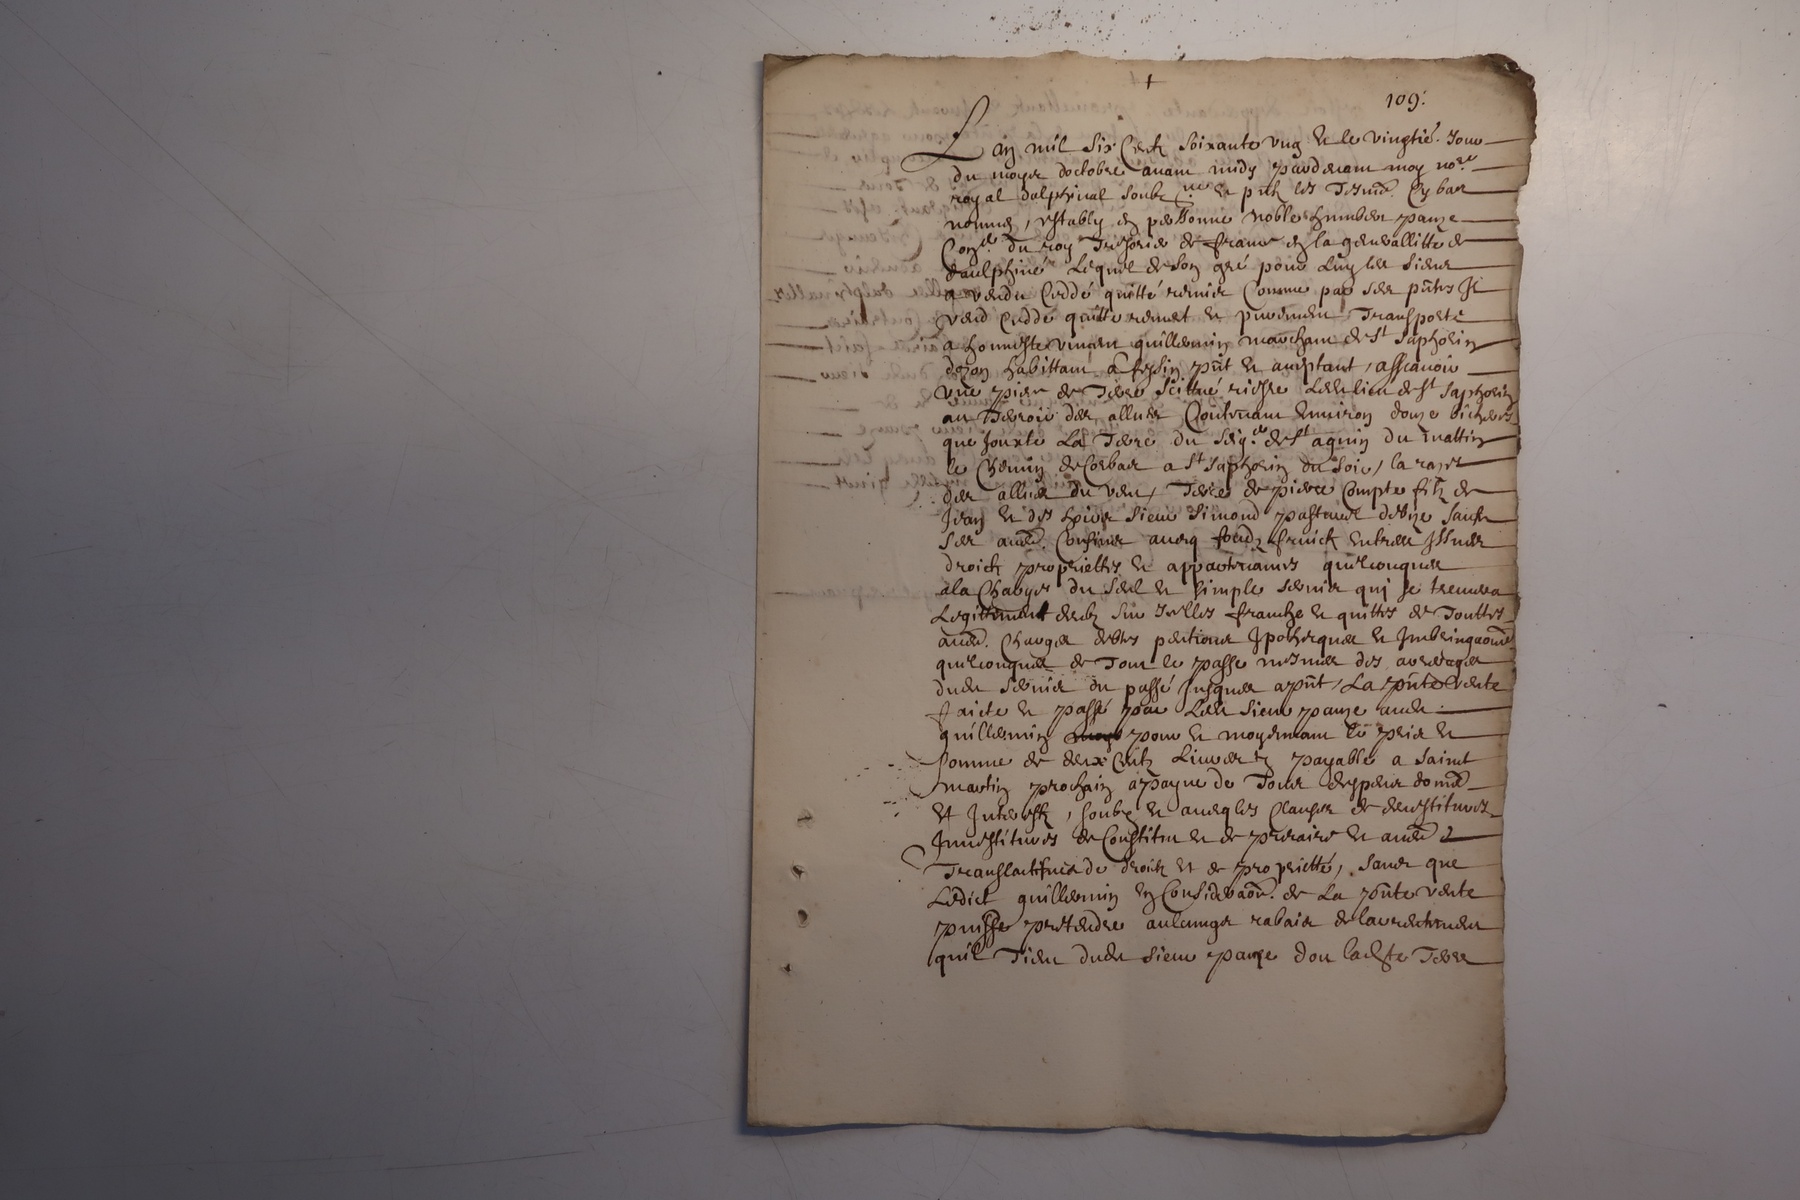 109.
L an mil six Centz soixante ung & le vingtie. Jour
du moys doctobre avant midy pardevant moy nore
royal dalphinal soubz ne & pntz les Tesms. Cy bas
nommes, estably en personne noble humber panze
Coner du roy Tresorier de france en la generallitte de
daulphiné Lequel de son gré pour Luy les siens
a vendu Ceddé quitté remier Comme par ses pntes Il
vend Cedde quitte remet & purement Transporte
a honneste vincen guillermin marchant de St saphorin
dozon habittant a feysin pnt & aceptant, assavoir
une piece de Terre scittué riesre Ledt lieu de St saphorin
au Terroir des allues Contenant environ douze bicherees
que Jouxte La Terre du seigr de St aguin du mattin
le Chemin de Corbas a St saphorin du soir, la raze
des allues du vent, Terre de pierre Compte filz de
Jean & des hoirs sieur simond pasteur de bize sauf
ses aues. Confines avecq fondz fruictz entrees Issues
droictz proprietties & appartenances quelconques
a la Charge du seul & simple servis qui se treuvera
Legittiment deub sur Icelles franche & quitte de Touttes
aues. Charges debtes pentions Ipotheques & Imbringaons
quelconques de Tout le passe mesmes des arrerages
dudt servis du passé Jusques a pnt, La pnte vente
faicte & passé par Ledt sieur panze audt
guillermin pour & moyennant le prix &
somme de deux Centz Livres tz payable a saint
martin prochain a payne de Tous despens domes
Et Interestz, soubz & avecq les Clauses de devestitures
Investitures de Constitu & de precaire & aues
Translactifves de droictz & de proprietté, sans que
Ledict guillermin en Consideraon. de La pnte vente
puisse pretendre aulcungs rabais de larrentement
quil Tient dudt sieur panze dou ladte Terre